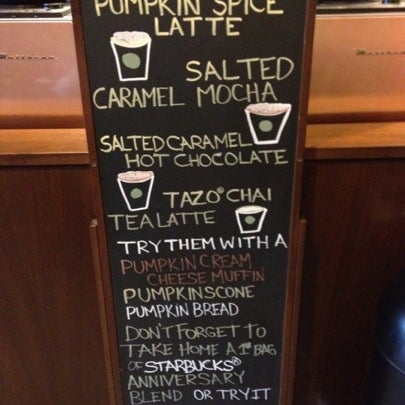 PUMPKIN SPICE
LATTE
SALTED
CARAMEL MOCHA
SALTED CARAMEL
HOT CHOCOLATE
TAZO® CHAI
TEA LATTE
TRY THEM WITH A
PUMPKIN CREAM
CHEESE MUFFIN
PUMPKIN SCONE
PUMPKIN BREAD
DON'T FORGET TO
TAKE HOME A 1LB BAG
OF STARBUCKS®
ANNIVERSARY
BLEND OR TRY IT